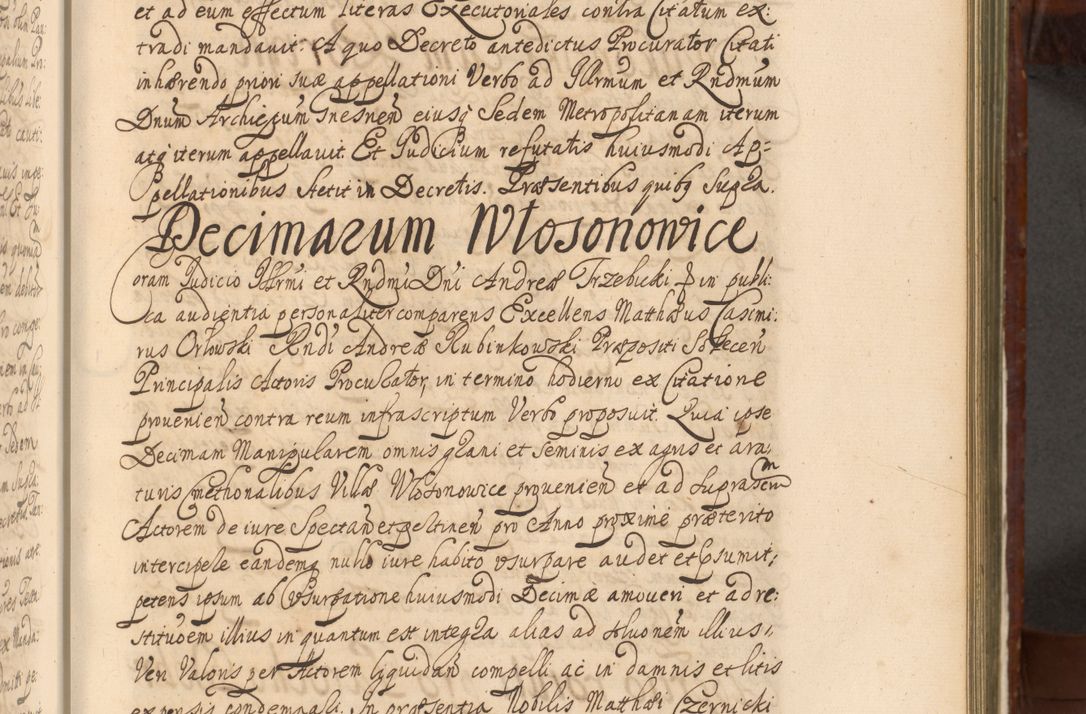 et ad eum effectum literas Executoriales contra Citatum ex:
tradi mandauit. A quo Decreto antedictus Procurator Citati
inhærendo priori suæ appellationi Verbo ad Illrmum et Rndmum
Dnum Archiepum Gnesnen eiusq Sedem Metropolitanam iterum
atq iterum appellauit. Et Judicium refutatis huiusmodi Ap=
pellationibus stetit in Decretis. Præsentibus quibq supra.
Decimarum Włosonowice
Coram Judicio Illrmi et Rndmi Dni Andreæ Trzebicki in publi:
ca audientia personaliter comparens Excellens Mathæus Casimi:
rus Orłowski Rndi Andreæ Rubinkowski Præpositi
Principalis Actoris Procurator, in termino hodierno ex Citatione
prouenien contra reum infrascriptum Verbo proposuit. Quia ipse
Decimam Manipularem omnis grani et seminis ex agris et ara,
turis Cmethonalibus Villæ Włosonowice prouenien et ad supra
Actorem de iure Spectan et pertinen pro Anno proxime præterito
intercipere eandemq nullo iure habito vsurpare audet et
petens ipsum ab Vsurpatione huiusmodi Decimæ amoueri et ad re:
stituoem illius in quantum est integra alias ad solutionem illius,
Veri Valoris per Actorem liquidan compelli ac in damnis et litis
expensis condemnari. In præsentia Nobilis Mathæi Czernicki